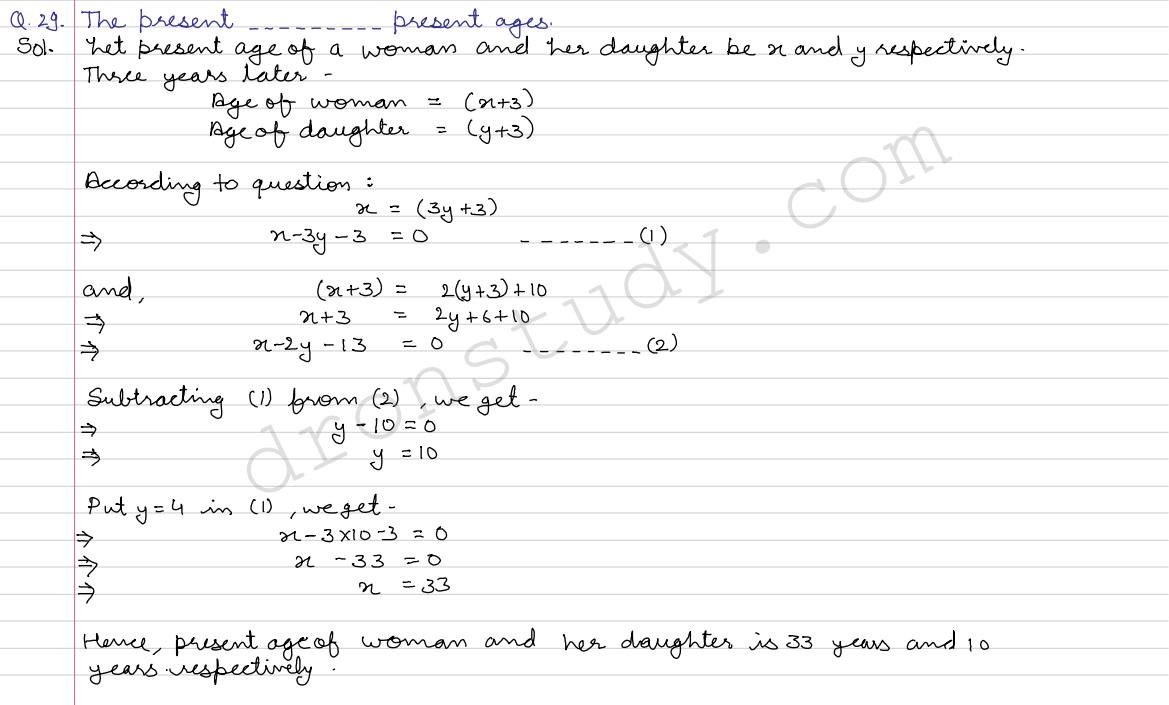 Q.29. The present _________ present ages.
Sol. Let present age of a woman and her daughter be x and y respectively.
Three years later -
Age of woman = (x+3)
Age of daughter = (y+3)
According to question :
x = (3y+3)
⇒ x-3y-3 = 0 -------(1)
and, (x+3) = 2(y+3)+10
⇒ x+3 = 2y+6+10
⇒ x-2y-13 = 0 --------(2)
Subtracting (1) from (2), we get -
⇒ y-10=0
⇒ y = 10
Put y=4 in (1), we get -
⇒ x-3×10-3 = 0
⇒ x -33 = 0
⇒ x = 33
Hence, present age of woman and her daughter is 33 years and 10
years respectively.
dronstudy.com